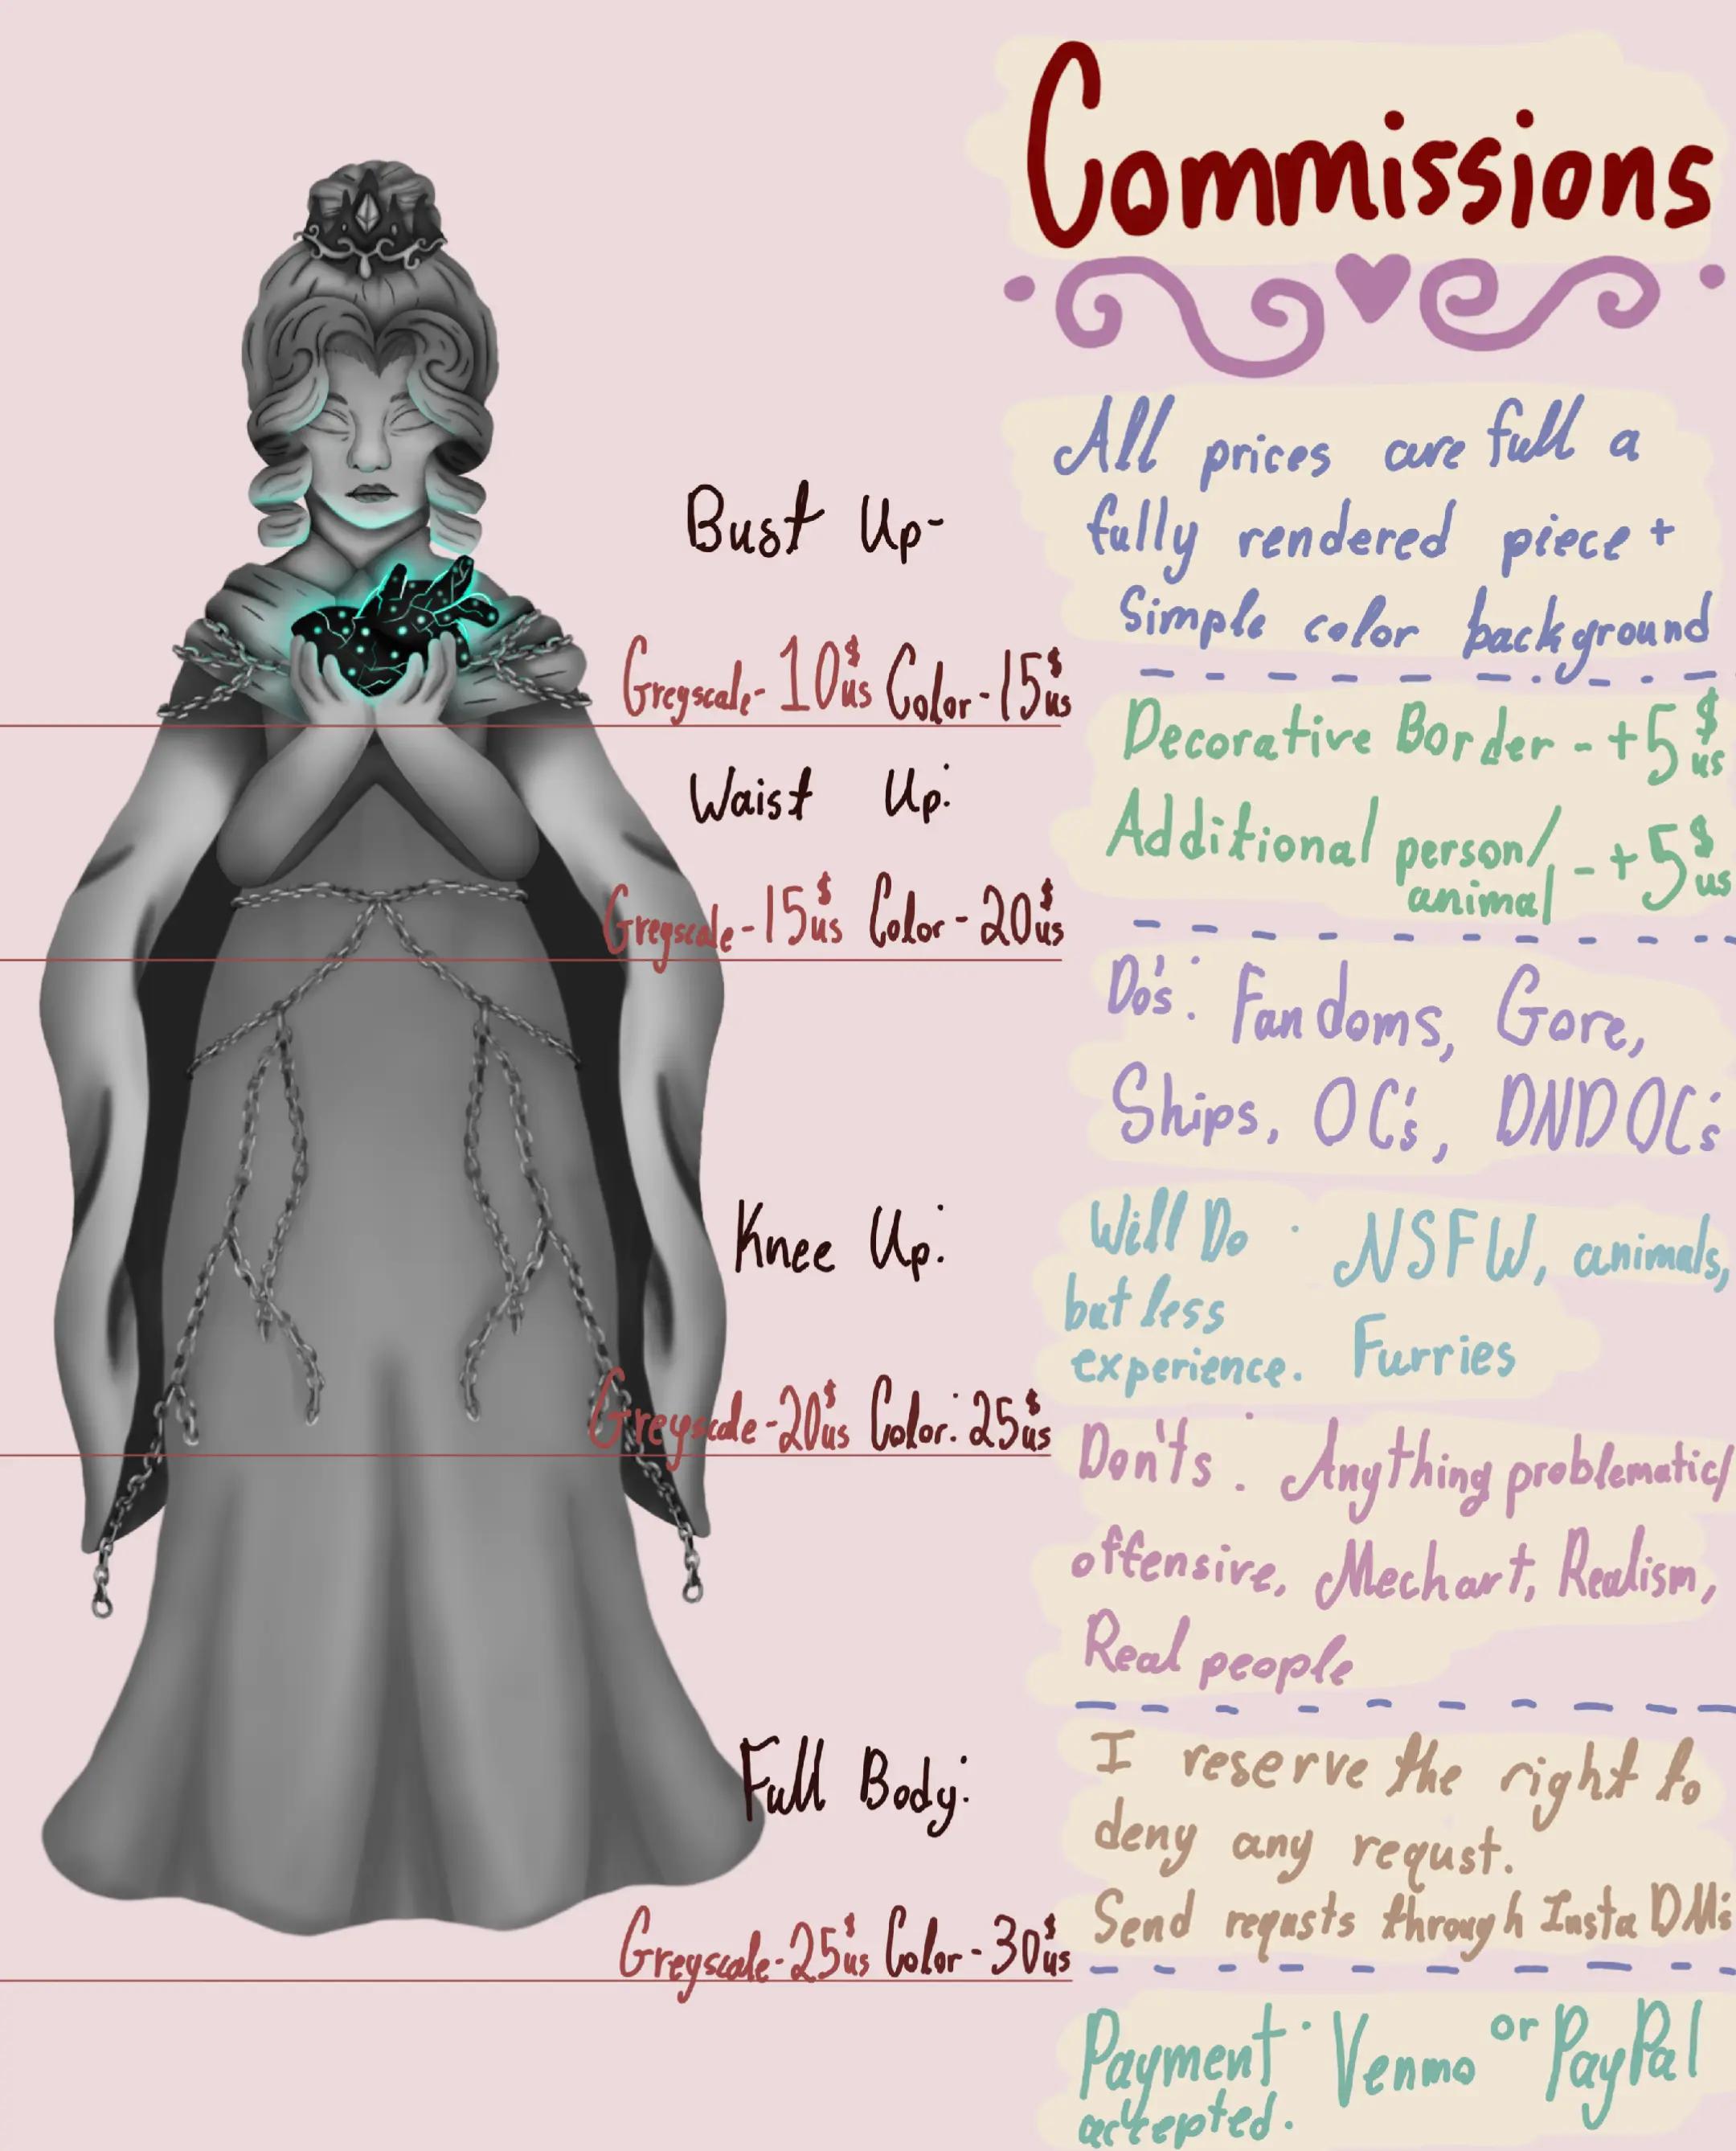 Commissions
All prices are full a
fully rendered piece +
Simple color background
Decorative Border - +5$us
Additional person/animal - +5$us
Do's: Fandoms, Gore,
Ships, OC's, DNDOC's
Will Do but less experience. : NSFW, animals,
Furries
Don'ts: Anything problematic/
offensive, Mechart, Realism,
Real people
I reserve the right to
deny any requst.
Send requsts through Insta DMs
Payment accepted. : Venmo or PayPal
Bust Up-
Greyscale-10$us Color-15$us
Waist Up:
Greyscale-15$us Color-20$us
Knee Up:
Greyscale-20$us Color: 25$us
Full Body:
Greyscale-25$us Color-30$us